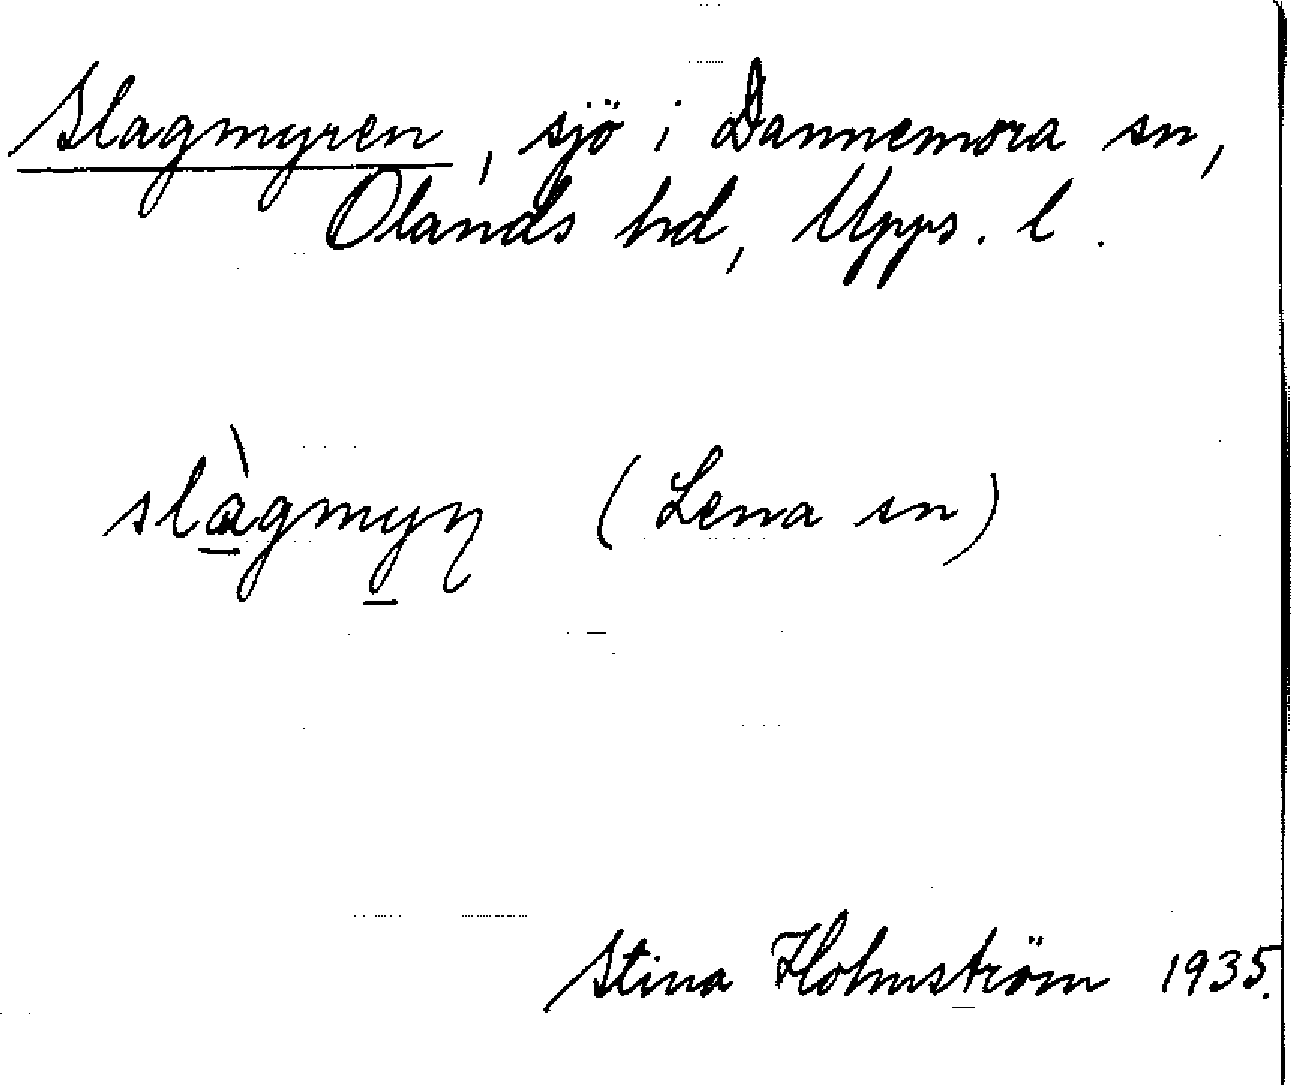 Slagmyren, sjö i Dannemora sn,
Olands hd, Upps. l.
slàgmyɳ (Lena sn)
Stina Holmström 1935.